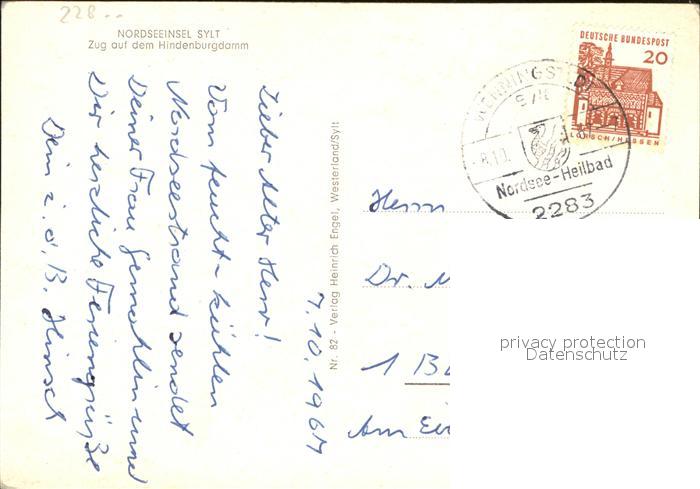 228..
NORDSEEINSEL SYLT
Zug auf dem Hindenburgdamm
7.10.1967
Lieber Alter Herr!
Vom feucht-kühlen
Nordseestrand sendet
Deiner Frau Gemahlin und
Dir herzliche Feriengrüße
Dein i. a. B.
Nr. 82 - Verlag Heinrich Engel, Westerland/Sylt
DEUTSCHE BUNDESPOST
20
LORSCH/HESSEN
WENNINGSTEDT
Sylt
-8.10.
Nordsee-Heilbad
2283
Herrn
Dr. M
1 B
Am
privacy protection
Datenschutz